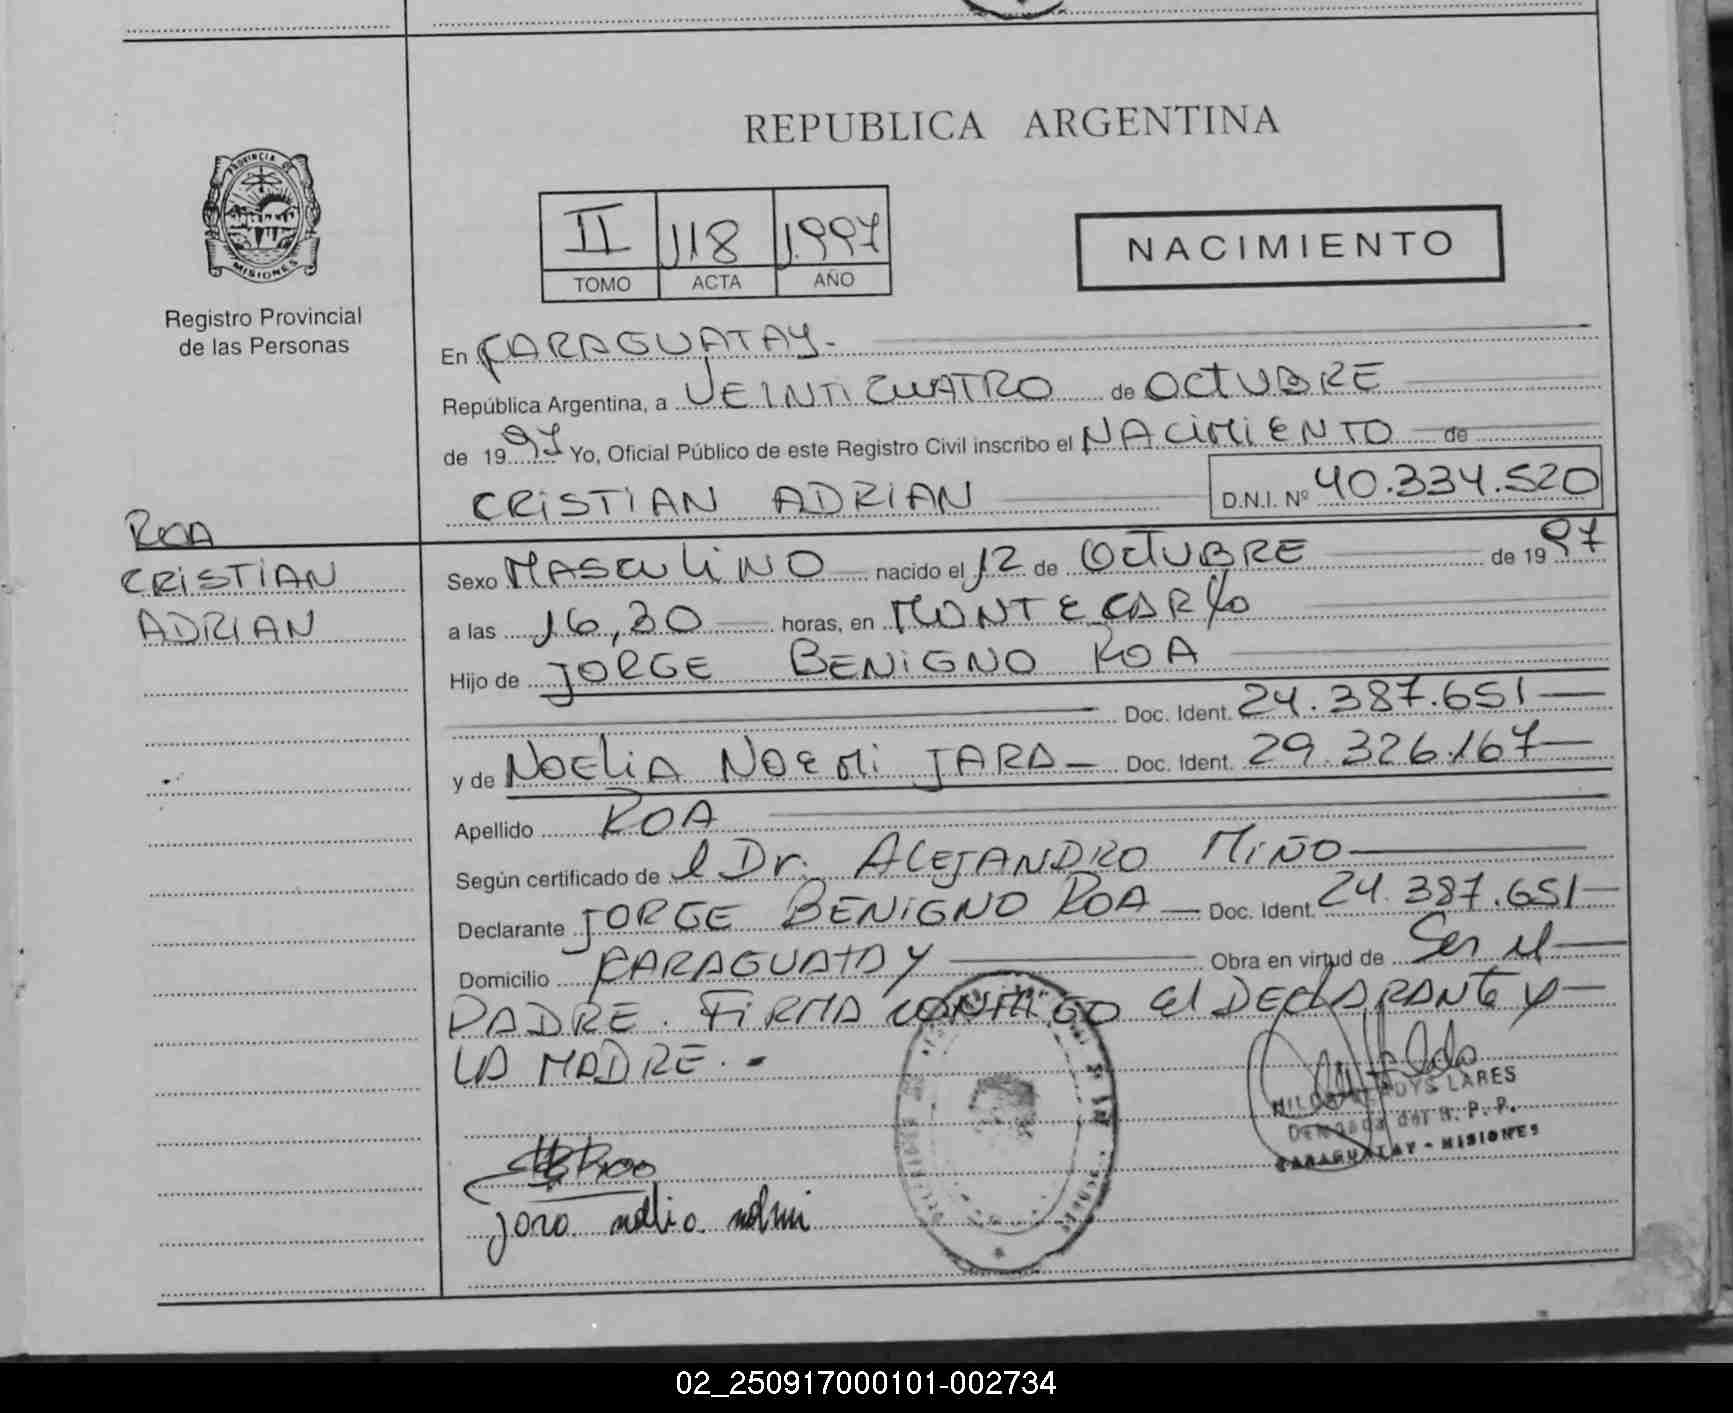 REPUBLICA ARGENTINA
PROVINCIA DE
MISIONES
Registro Provincial
de las Personas
II 118 1.997
TOMO ACTA AÑO
NACIMIENTO
En CARAGUATAY.-
República Argentina, a VEINTICUATRO de OCTUBRE
de 1997 Yo, Oficial Público de este Registro Civil inscribo el NACIMIENTO de
CRISTIAN ADRIAN D.N.I. Nº 40.334.520
ROA
CRISTIAN
ADRIAN
Sexo MASCULINO nacido el 12 de OCTUBRE de 1997
a las 16,30 horas, en MONTECARLO
Hijo de JORGE BENIGNO ROA
Doc. Ident. 24.387.651
y de NOELIA NOEMI JARA Doc. Ident. 29.326.167
Apellido ROA
Según certificado de el Dr. ALEJANDRO MIÑO
Declarante JORGE BENIGNO ROA Doc. Ident. 24.387.651
Domicilio CARAGUATAY Obra en virtud de Ser el
PADRE. FIRMA CONMIGO el DECLARANTE y
LA MADRE.-
GLADYS LARES
del R. P. P.
CARAGUATAY - MISIONES
Roa
Jara noelia noemi
02_250917000101-002734